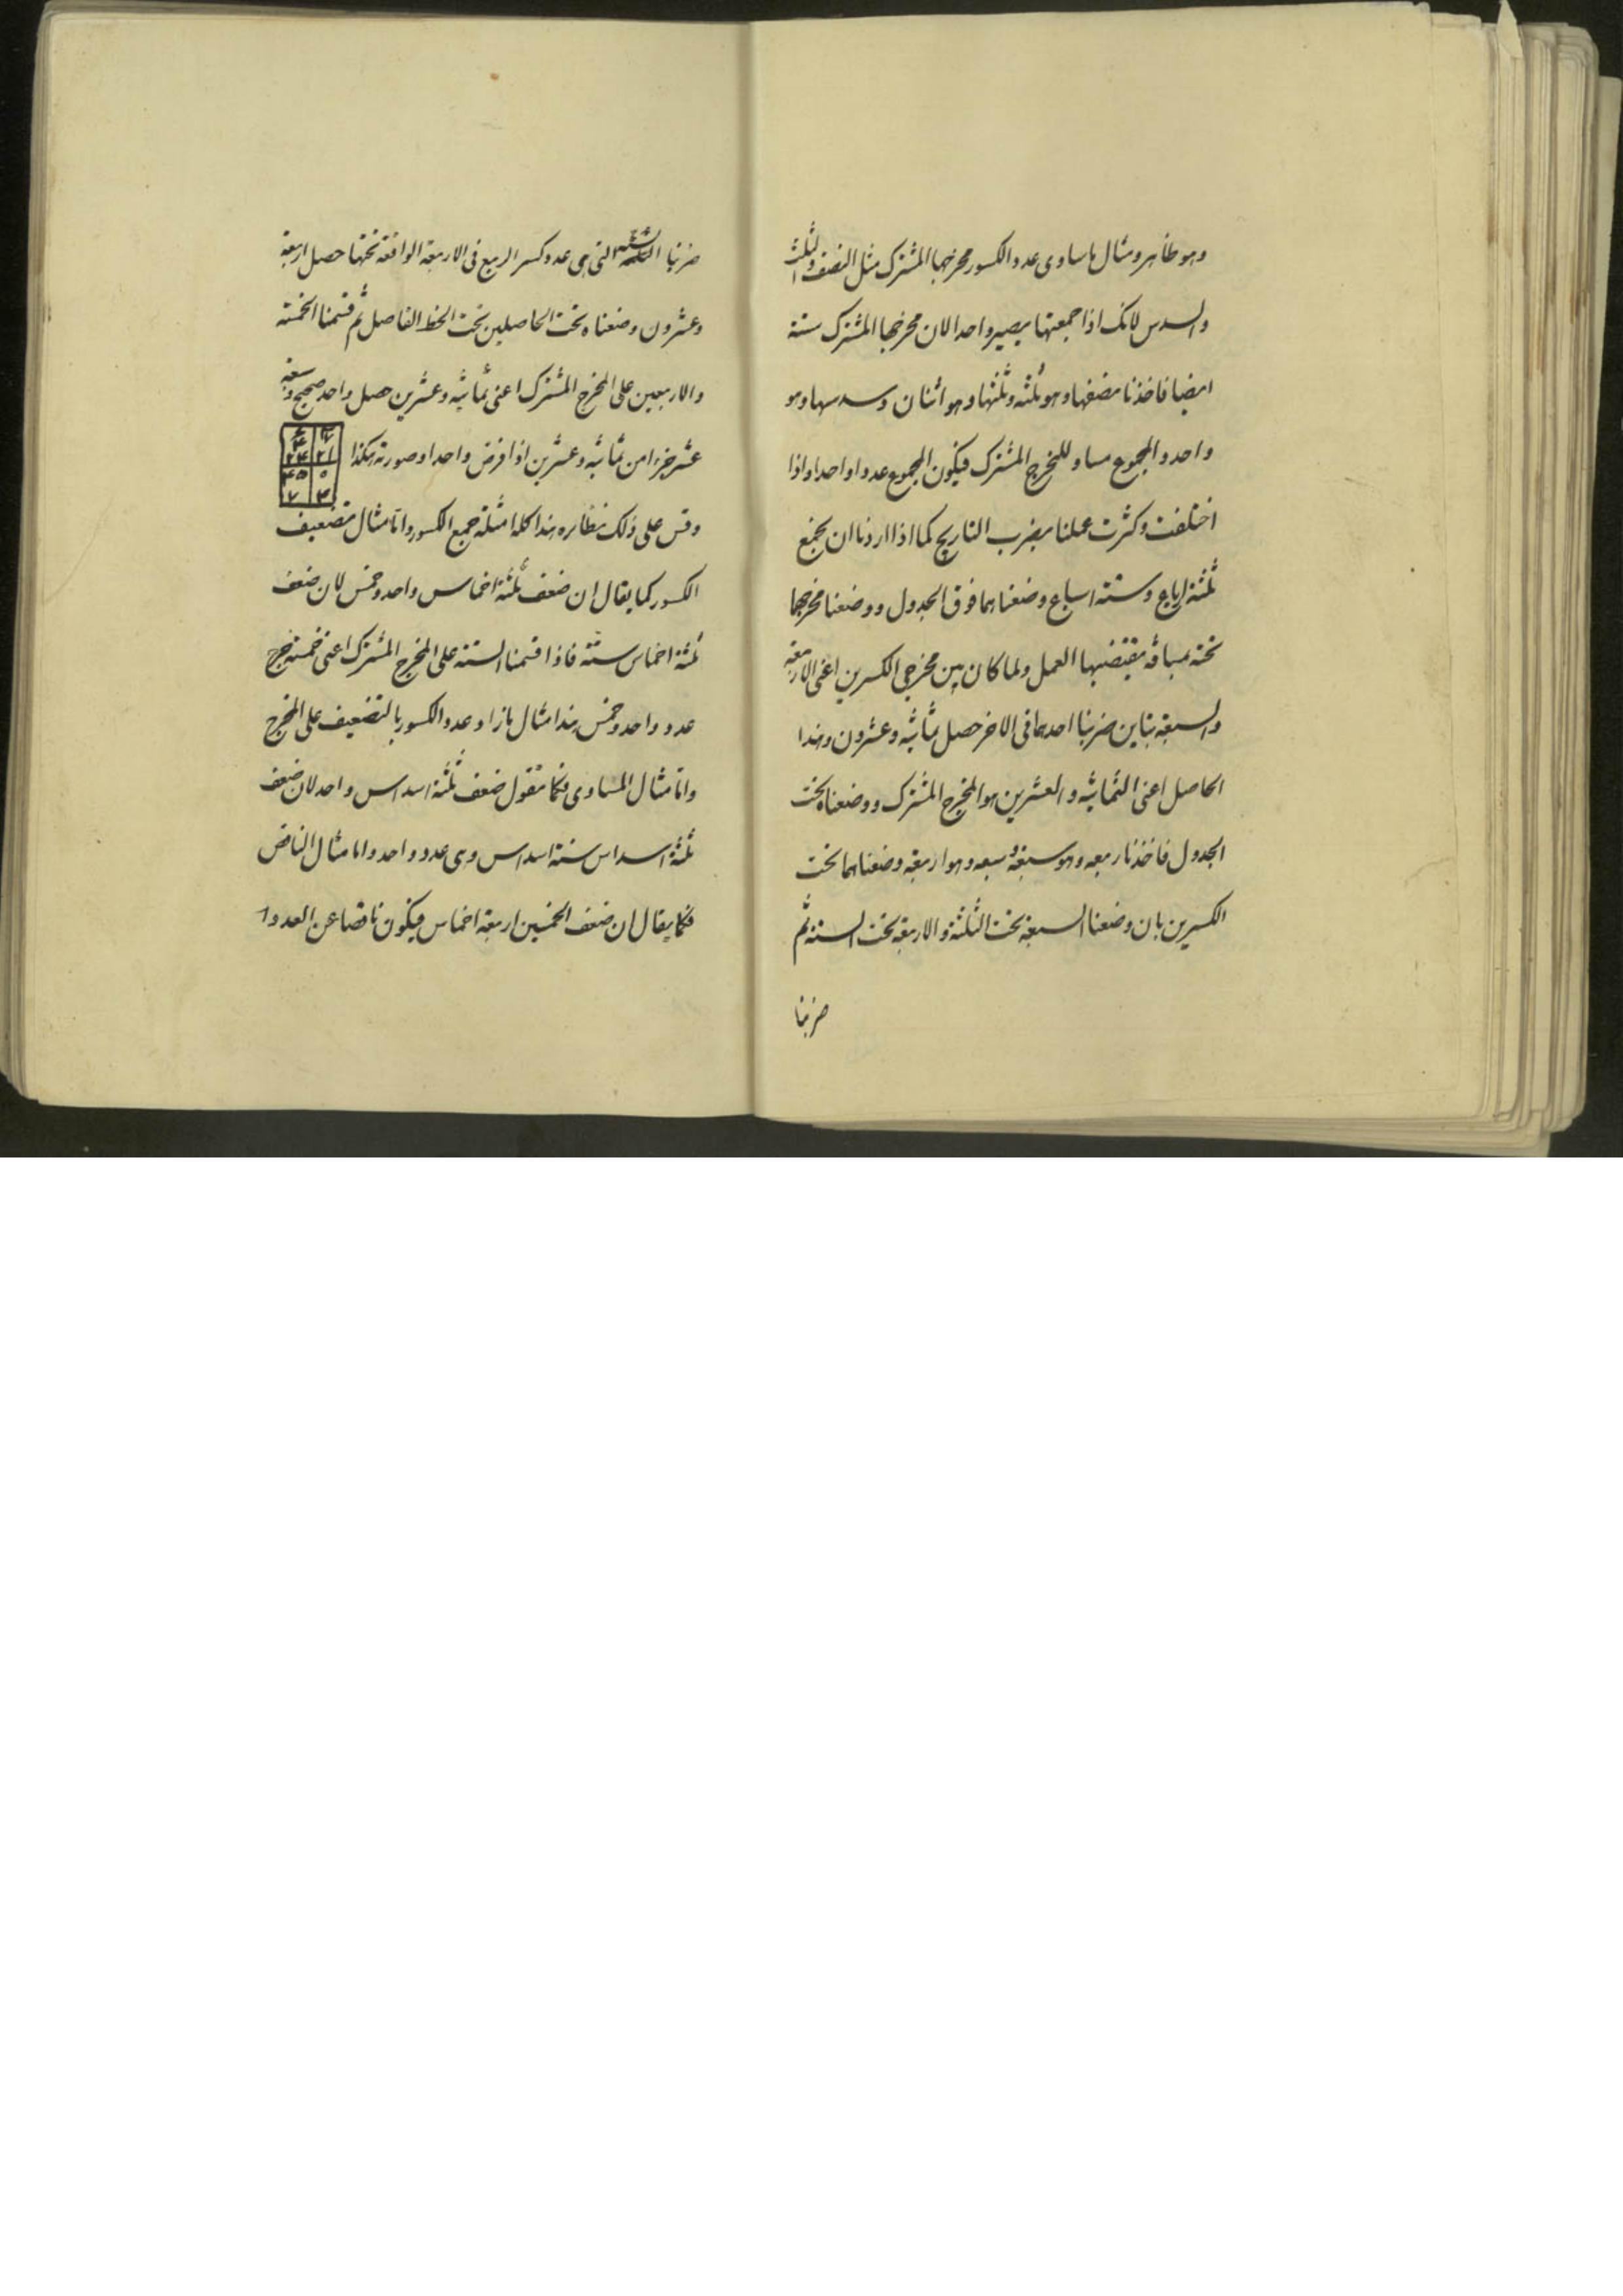 وهو ظاهر ومثال ما ساوى عدد الكسور مخرجها المشترك مثل النصف والثلث
والسدس لانك اذا جمعتها يصير واحدا لان مخرجها المشترك ستة
ايضا فاخذنا نصفها وهو ثلثه وثلثها وهو اثنان وسدسها وهو
واحد والمجموع مساو للمخرج المشترك فيكون المجموع عددا واحدا واذا
اختلفت وكثرت عملنا بضرب التاريج كما اذا اردنا ان نجمع
ثلثة ارباع وستة اسباع وضعناهما فوق الجدول ووضعنا مخرجهما
تحته بمسافة يقتضيها العمل ولما كان بين مخرجى الكسرين اعنى الاربعة
والسبعة تباين ضربنا احدهما فى الاخر حصل ثمانية وعشرون وهذا
الحاصل اعنى الثمانية والعشرين هو المخرج المشترك ووضعناه تحت
الجدول فاخذنا ربعه وهو سبعة وسبعه وهو اربعة وضعناهما تحت
الكسرين بان وضعنا السبعة تحت الثلثة والاربعة تحت الستة ثم
ضربنا
ضربنا الستة التى هى عدد كسر الربع فى الاربعة الواقعة تحتها حصل اربعة
وعشرون وضعناه تحت الحاصلين تحت الخط الفاصل ثم قسمنا الخمسة
والاربعين على المخرج المشترك اعنى ثمانية وعشرين حصل واحد صحيح وسبعة
عشر جزءا من ثمانية وعشرين اذا فرض واحدا وصورته هكذا
٢١ ٢٤
٤٥
٤ ٧
وقس على ذلك نظائره هذا كله امثلة جمع الكسور واما مثال تضعيف
الكسور كما يقال ان ضعف ثلثة اخماس واحد وخمس لان ضعف
ثلثة اخماس ستة فاذا قسمنا الستة على المخرج المشترك اعنى خمسة خرج
عدد واحد وخمس هذا مثال ما زاد عدد الكسور بالتضعيف على المخرج
واما مثال المساوى فكما نقول ضعف ثلثة اسداس واحد لان ضعف
ثلثة اسداس ستة اسداس وهى عدد واحد واما مثال الناقص
فكما يقال ان ضعف الخمسين اربعة اخماس فيكون ناقصا عن العدد